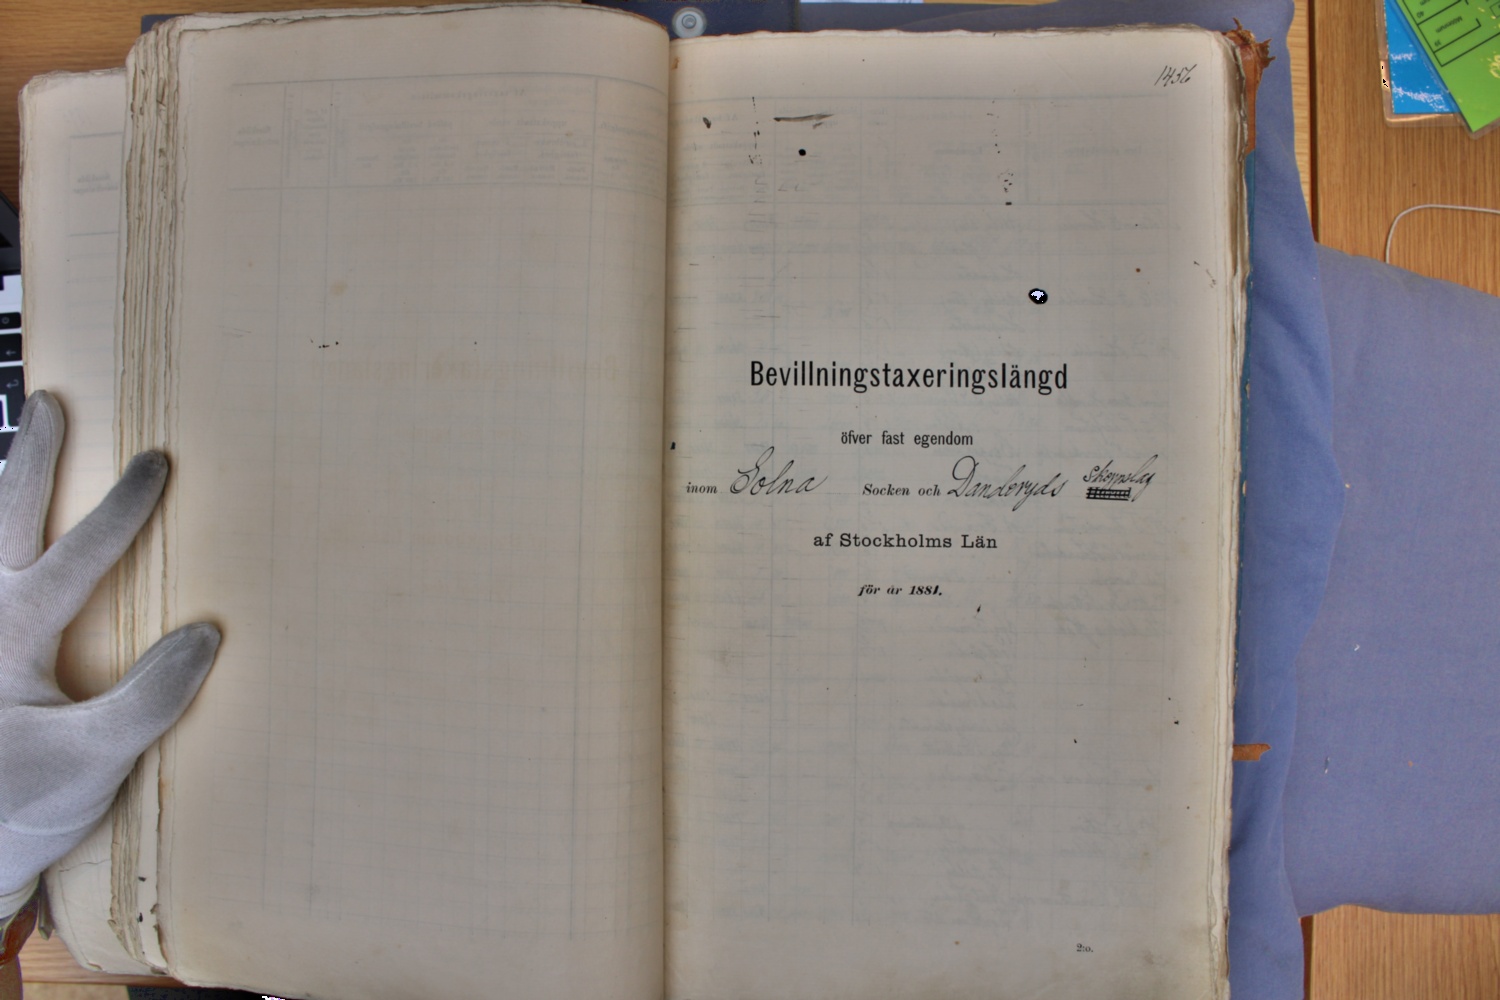 1456
Bevillningstaxeringslängd
öfver fast egendom
inom Solna Socken och Danderyds Skeppslag
af Stockholms Län
för år 1881.
2:o.